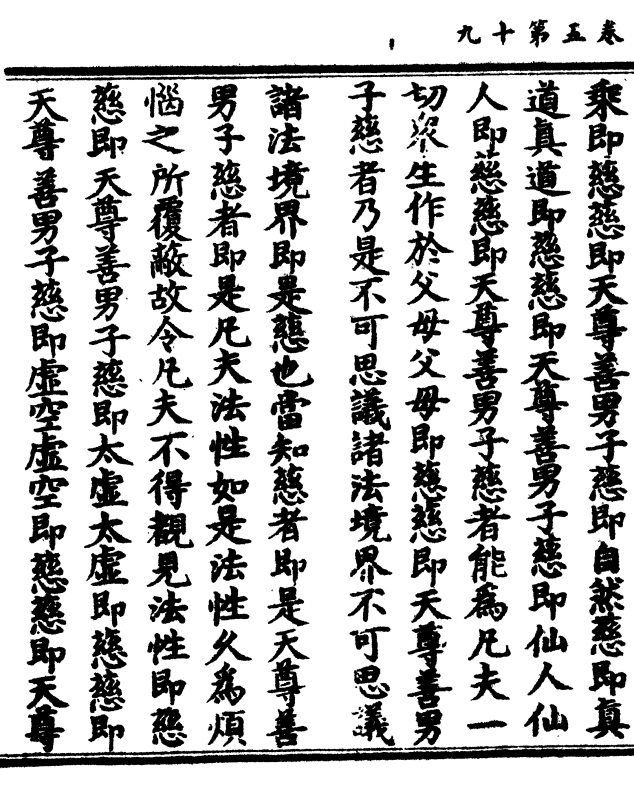 卷五第十九
乘即慈慈即天尊善男子慈即自然慈即真
道真道即慈慈即天尊善男子慈即仙人仙
人即慈慈即天尊善男子慈者能爲凡夫一
切眾生作於父母父母即慈慈即天尊善男
子慈者乃是不可思議諸法境界不可思議
諸法境界即是慈也當知慈者即是天尊善
男子慈者即是凡夫法性如是法性久爲煩
惱之所覆蔽故令凡夫不得觀見法性即慈
慈即天尊善男子慈即太虛太虛即慈慈即
天尊善男子慈即虛空虛空即慈慈即天尊